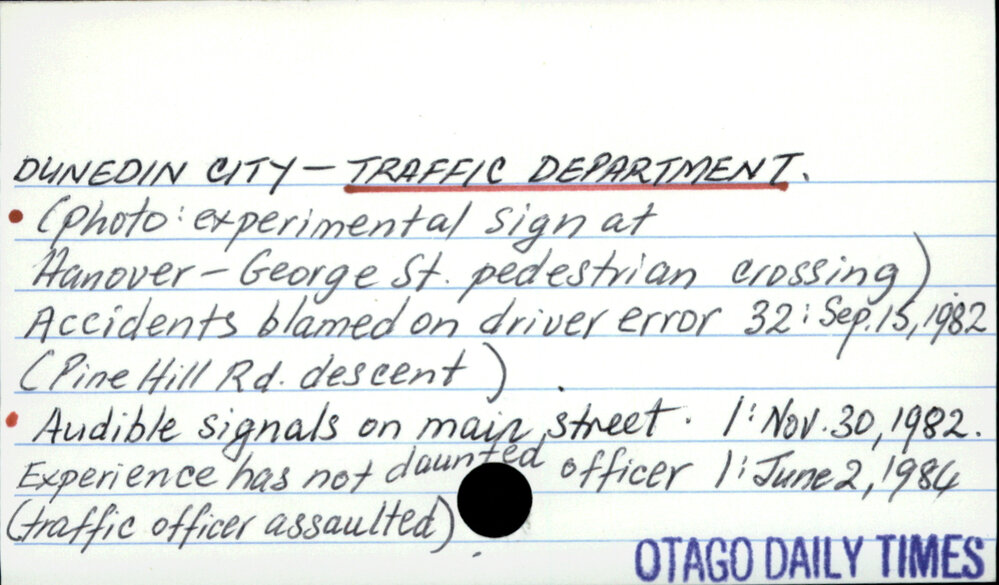 DUNEDIN CITY – TRAFFIC DEPARTMENT.
• (photo: experimental sign at
Hanover – George St. pedestrian crossing)
Accidents blamed on driver error 32: Sep. 15, 1982
(Pine Hill Rd. descent)
• Audible signals on main street. 1: Nov. 30, 1982.
Experience has not daunted officer 1: June 2, 1984
(traffic officer assaulted)
OTAGO DAILY TIMES